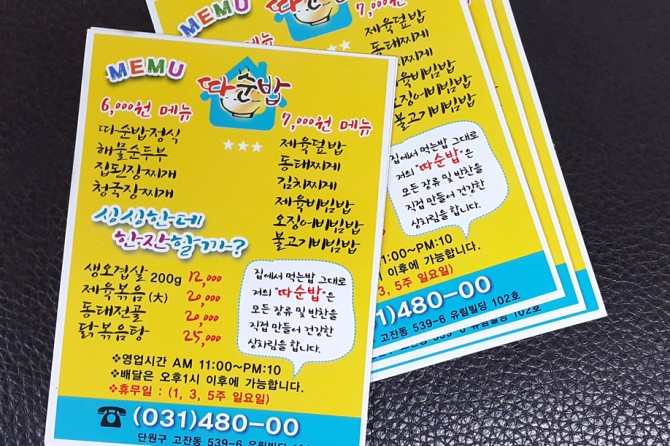 MEMU
따순밥
6,000원 메뉴
따순밥정식
해물순두부
집된장찌개
청국장찌개
7,000원 메뉴
제육덮밥
동태찌개
김치찌개
제육비빔밥
오징어비빔밥
불고기비빔밥
싱싱한데
한잔할까?
생오겹살 200g 12,000
제육볶음 (大) 20,000
동태전골 20,000
닭볶음탕 25,000
집에서 먹는밥 그대로
저희 "따순밥"은
모든 장류 및 반찬을
직접 만들어 건강한
상차림을 합니다.
❖영업시간 AM 11:00~PM:10
❖배달은 오후1시 이후에 가능합니다.
❖휴무일 : (1, 3, 5주 일요일)
☎ (031)480-00
단원구 고잔동 539-6 유림빌딩 102
MEMU
7,000원 메뉴
제육덮밥
동태찌개
육비빔밥
오징어비빔밥
불고기비빔밥
집에서 먹는밥 그대로
저희 "따순밥"은
모든 장류 및 반찬을
직접 만들어 건강한
상차림을 합니다.
:00~PM:10
이후에 가능합니다.
3, 5주 일요일)
31)480-00
고잔동 539-6 유림빌딩 102호